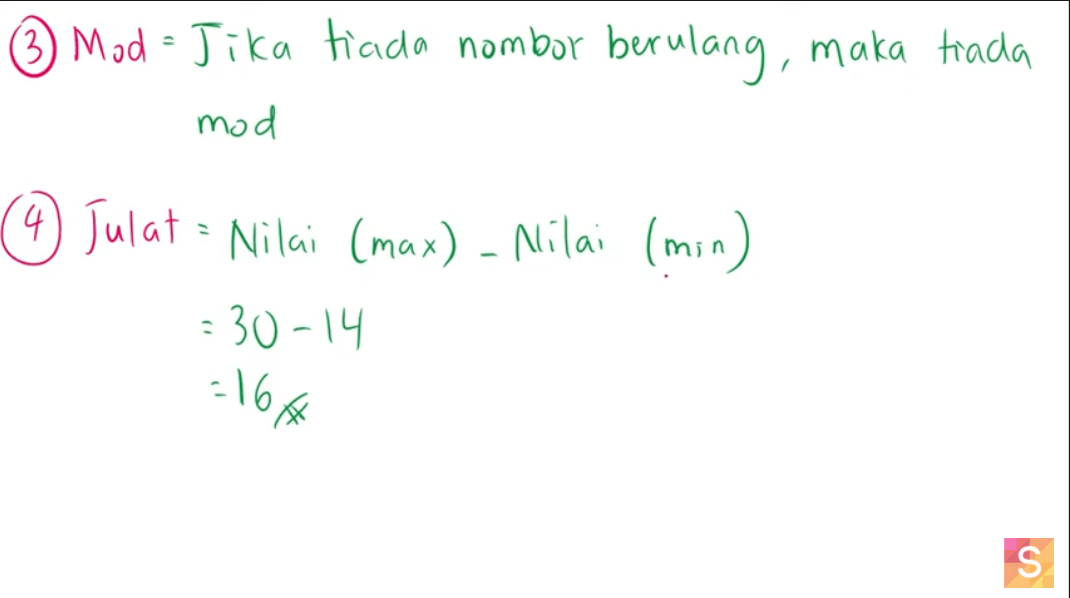 ③ Mod = Jika tiada nombor berulang, maka tiada
mod
④ Julat = Nilai (max) - Nilai (min)
= 30 - 14
= 16
S